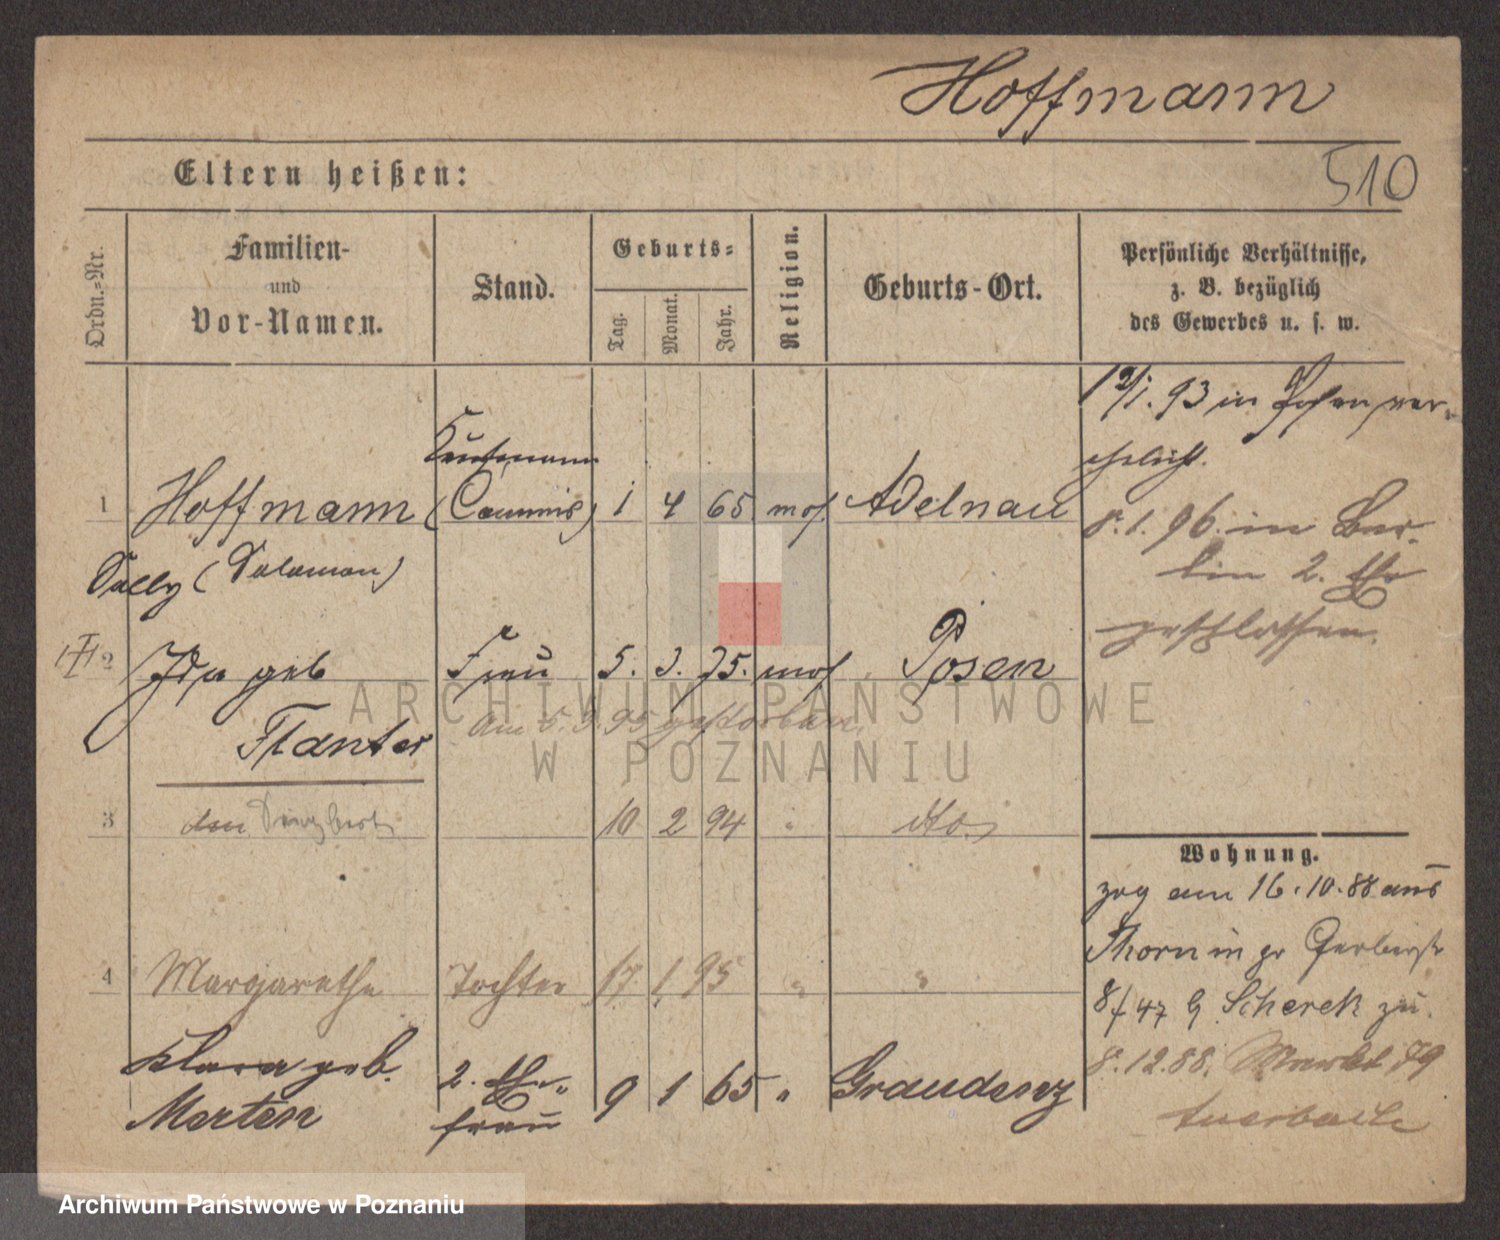 Hoffmann
510
Eltern heißen:
Ordn.-Nr.
Familien-
und
Vor-Namen.
Stand.
Geburts-
Tag.
Monat.
Jahr.
Religion.
Geburts-Ort.
Persönliche Verhältnisse,
z. B. bezüglich
des Gewerbes u. s. w.
12/1. 93 in Posen ver-
ehelicht.
Kaufmann
1 Hoffmann (Commis) 1 4 65 mos. Adelnau
Sally (Salomon)
8. 1. 96. in Ber-
lin 2. Ehe
geschlossen.
2 Ida geb Frau 5. 3. 75. mos Posen
Flanter
am 5. 3. 95 gestorben.
3 10 2 94 " dto.
Wohnung.
zog am 16.10.88 aus
Thorn in gr Gerberstr
8/47 b Scherek zu.
8.12.88. Markt 79
4 Margarethe Tochter 17 1 95 " "
Klara geb. 2. Ehe-
Merten frau 9 1 65 " Graudenz
ARCHIWUM PAŃSTWOWE
W POZNANIU
Archiwum Państwowe w Poznaniu